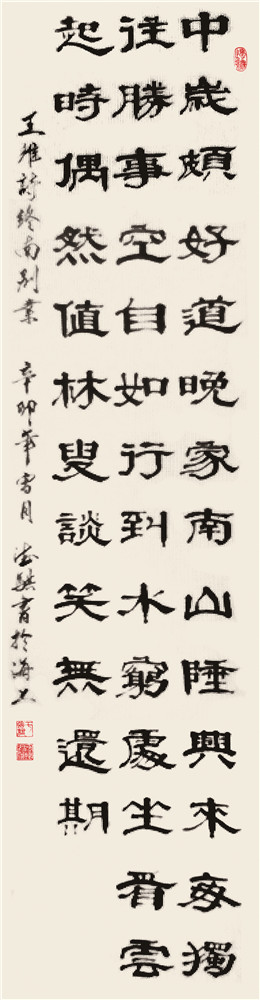 中歲頗好道晚家南山陲興來每獨
往勝事空自如行到水窮處坐看雲
起時偶然值林叟談笑無還期
王維詩終南別業 辛卯年雪月 書於海上